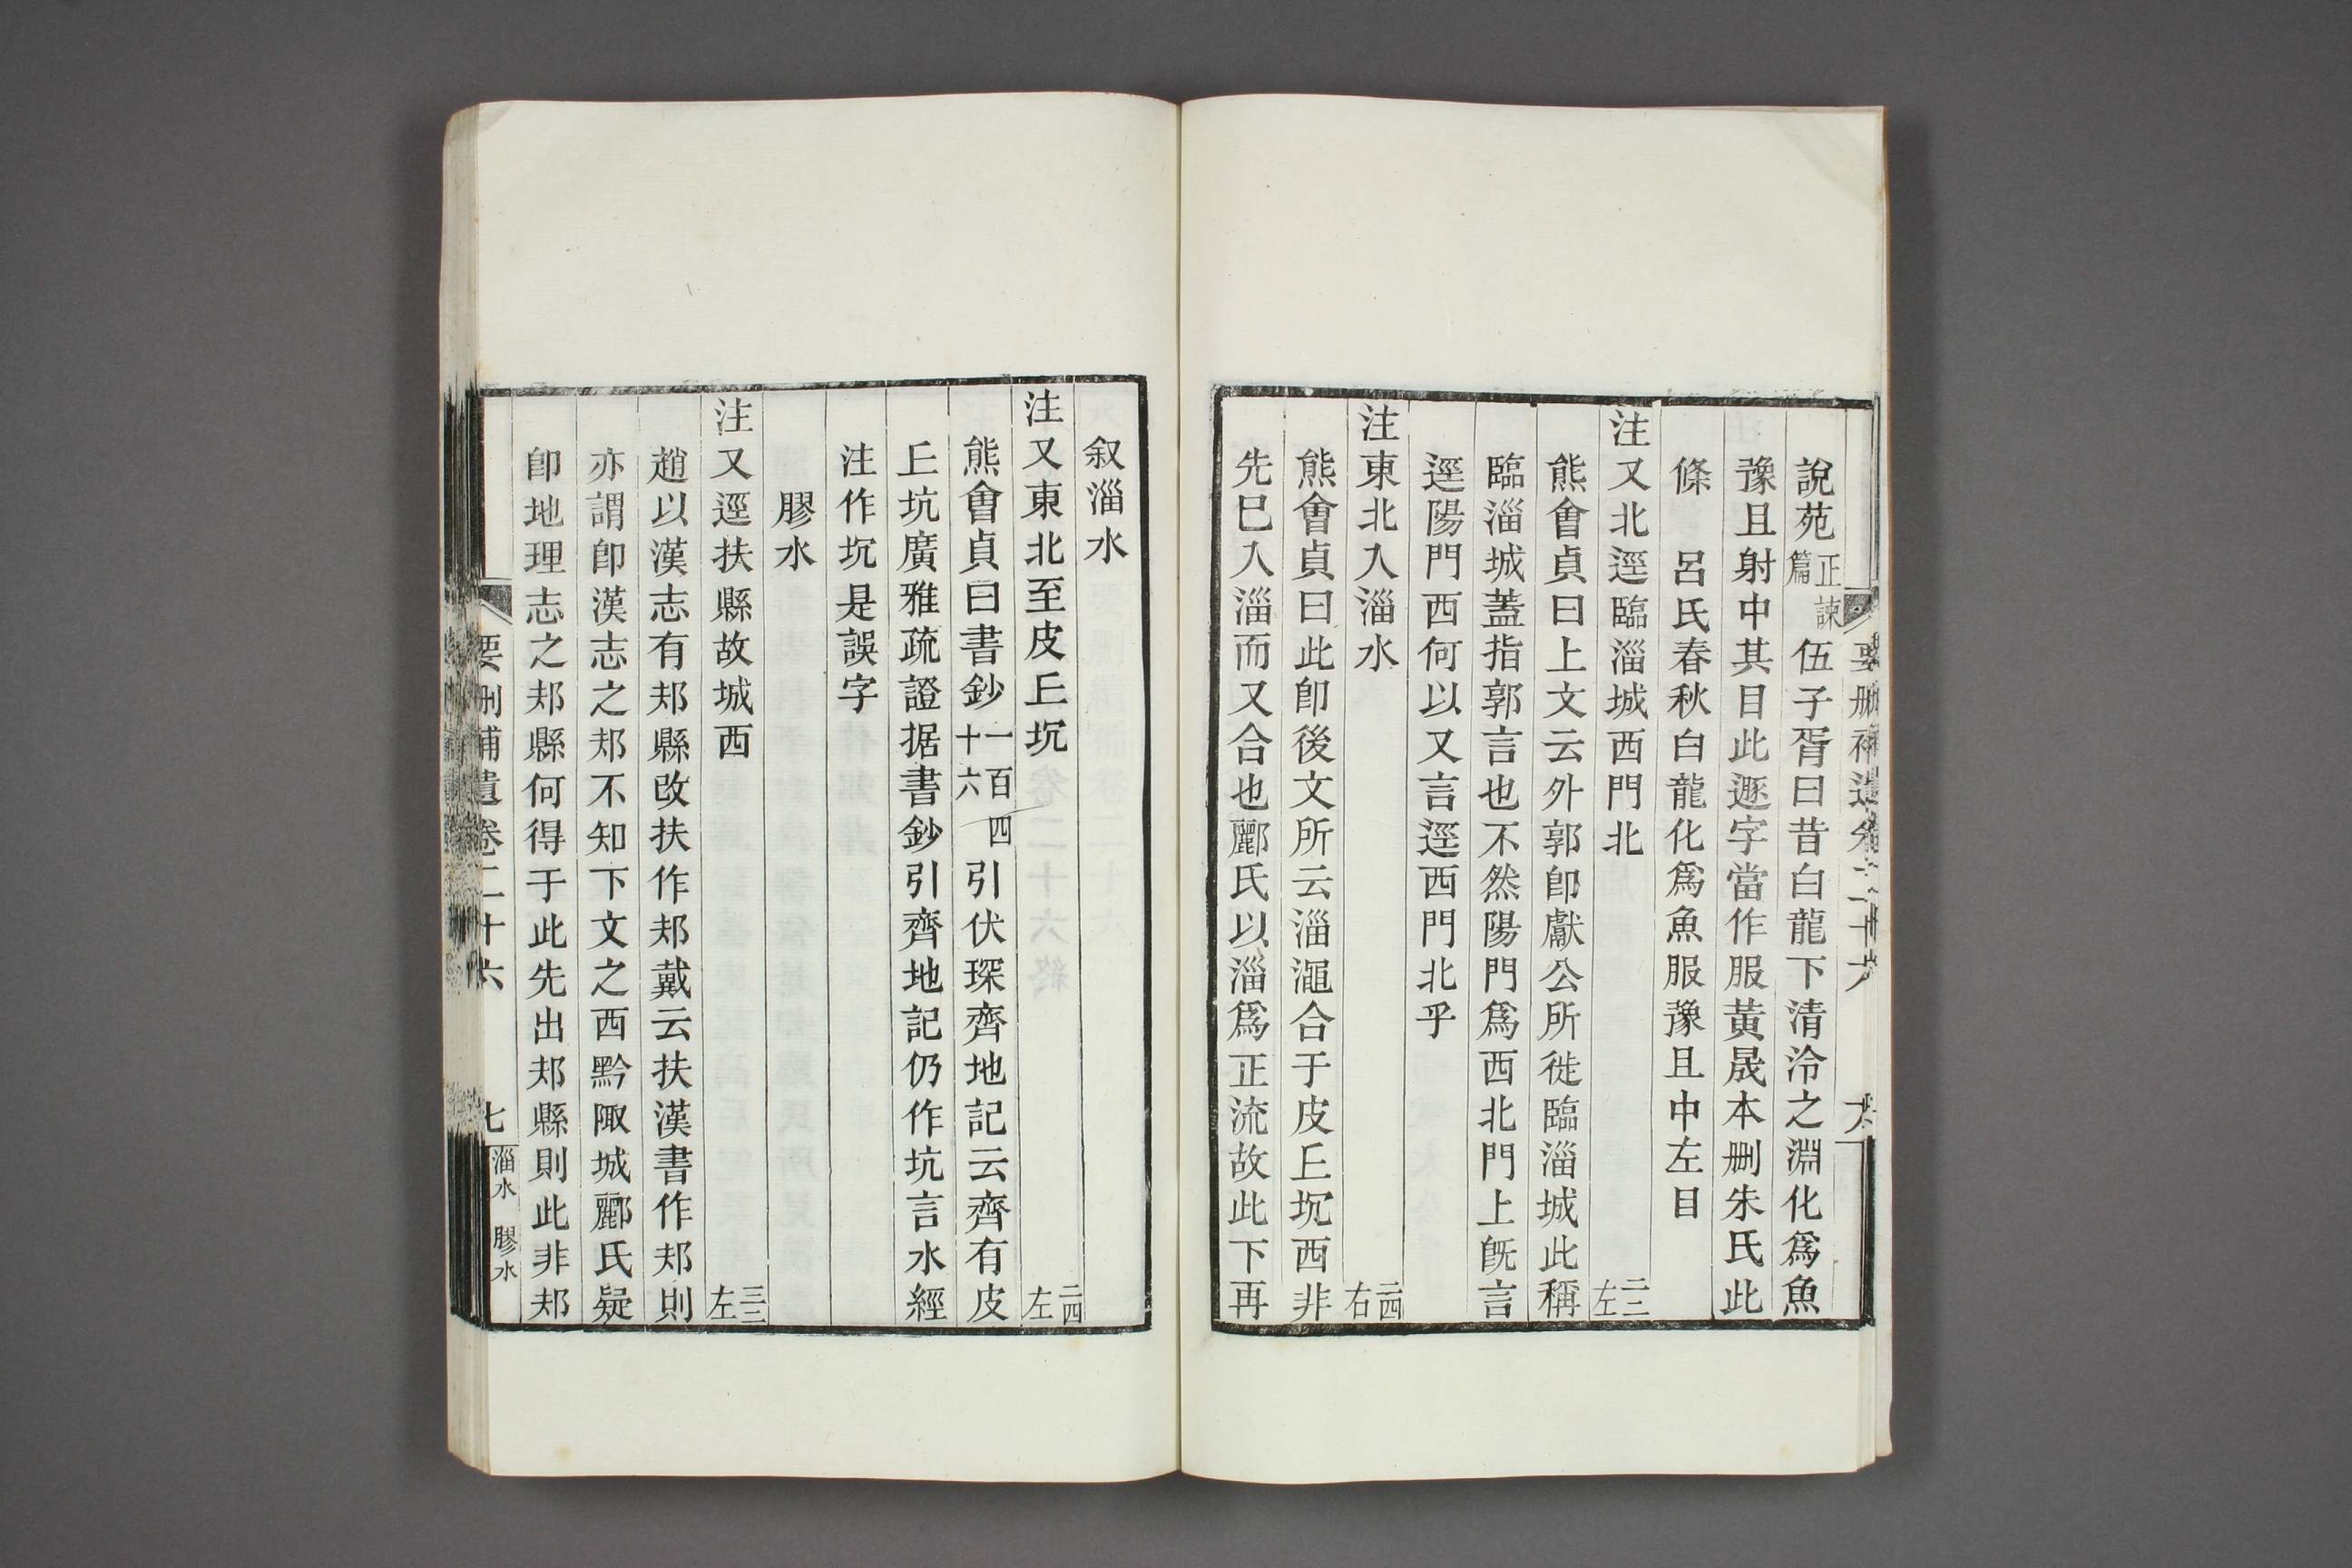 說苑正諫篇伍子胥曰昔白龍下清泠之淵化爲魚
豫且射中其目此遯字當作服黃晟本刪朱氏此
條　呂氏春秋白龍化爲魚服豫且中左目
注又北逕臨淄城西門北　二二左
熊會貞曰上文云外郭卽獻公所徙臨淄城此稱
臨淄城蓋指郭言也不然陽門爲西北門上旣言
逕陽門西何以又言逕西門北乎
注東北入淄水　二四右
熊會貞曰此卽後文所云淄澠合于皮丘坈西非
先巳入淄而又合也酈氏以淄爲正流故此下再
叙淄水
注又東北至皮丘坈　二四左
熊會貞曰書鈔一百四十六引伏琛齊地記云齊有皮
丘坑廣雅疏證据書鈔引齊地記仍作坑言水經
注作坈是誤字
膠水
注又逕扶縣故城西　三二左
趙以漢志有邞縣改扶作邞戴云扶漢書作邞則
亦謂卽漢志之邞不知下文之西黔陬城酈氏疑
卽地理志之邞縣何得于此先出邞縣則此非邞
要刪補遺卷二十六　七　淄水　膠水